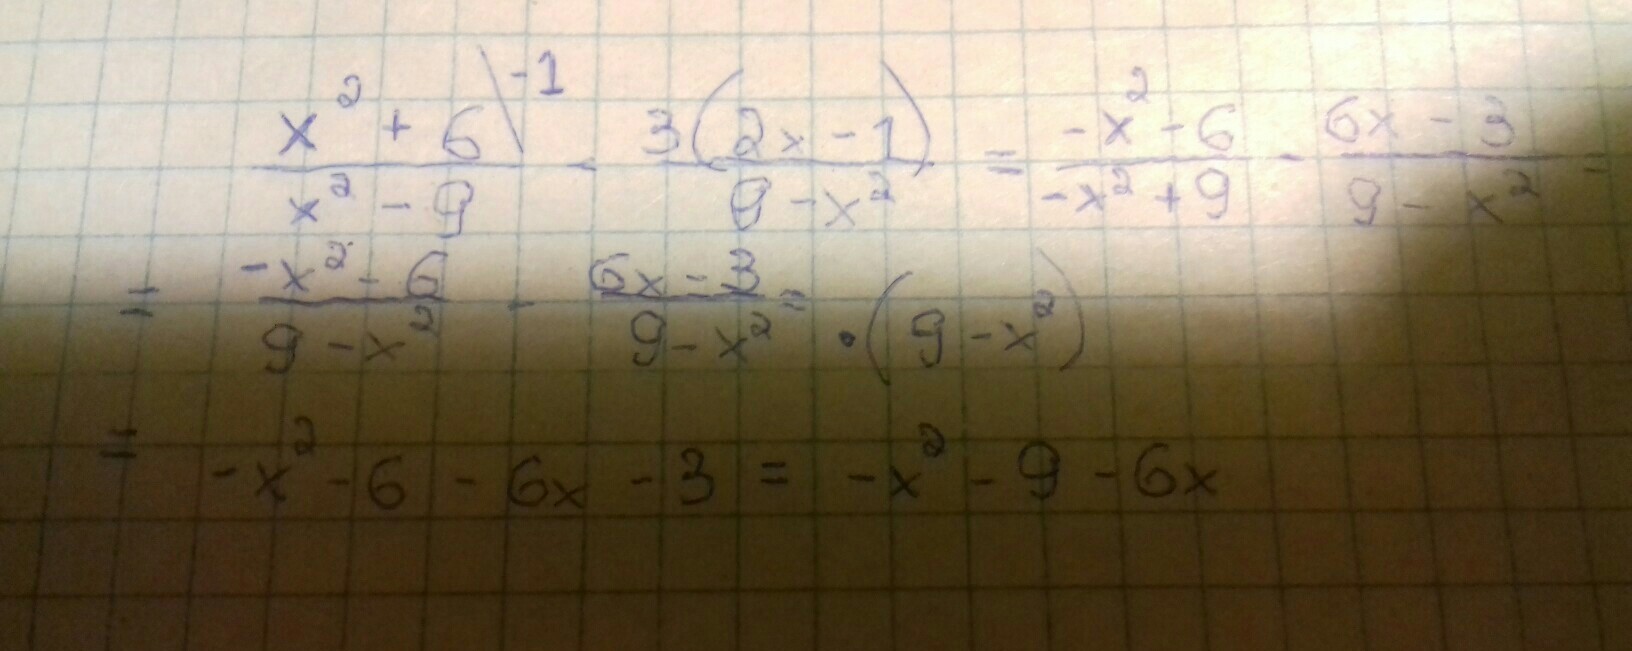 \frac{x^2 + 6}{x^2 - 9}^{\backslash -1} - \frac{3(2x - 1)}{9 - x^2} = \frac{-x^2 - 6}{-x^2 + 9} - \frac{6x - 3}{9 - x^2} =
= \frac{-x^2 - 6}{9 - x^2} - \frac{6x - 3}{9 - x^2} = \cdot (9 - x^2)
= -x^2 - 6 - 6x - 3 = -x^2 - 9 - 6x